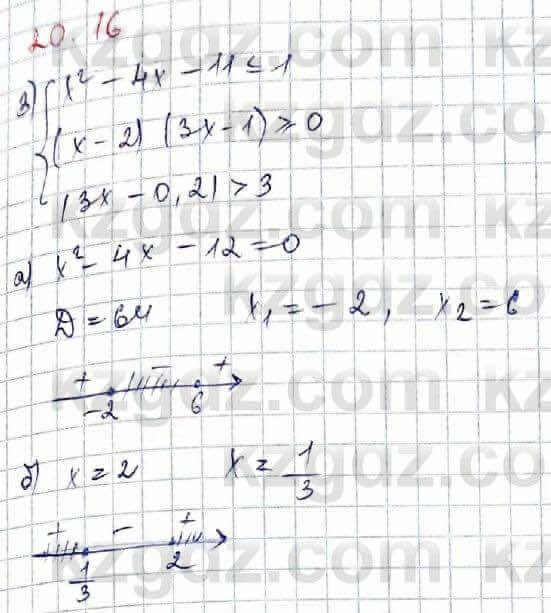 20.16
3) { x² - 4x - 11 ≤ 1
(x - 2) (3x - 1) ≥ 0
|3x - 0,2| > 3
а) x² - 4x - 12 = 0
D = 64 x₁ = -2, x₂ = 6
+ - +
-2 6
б) x = 2 x = 1/3
+ - +
1/3 2
kzgdz.com